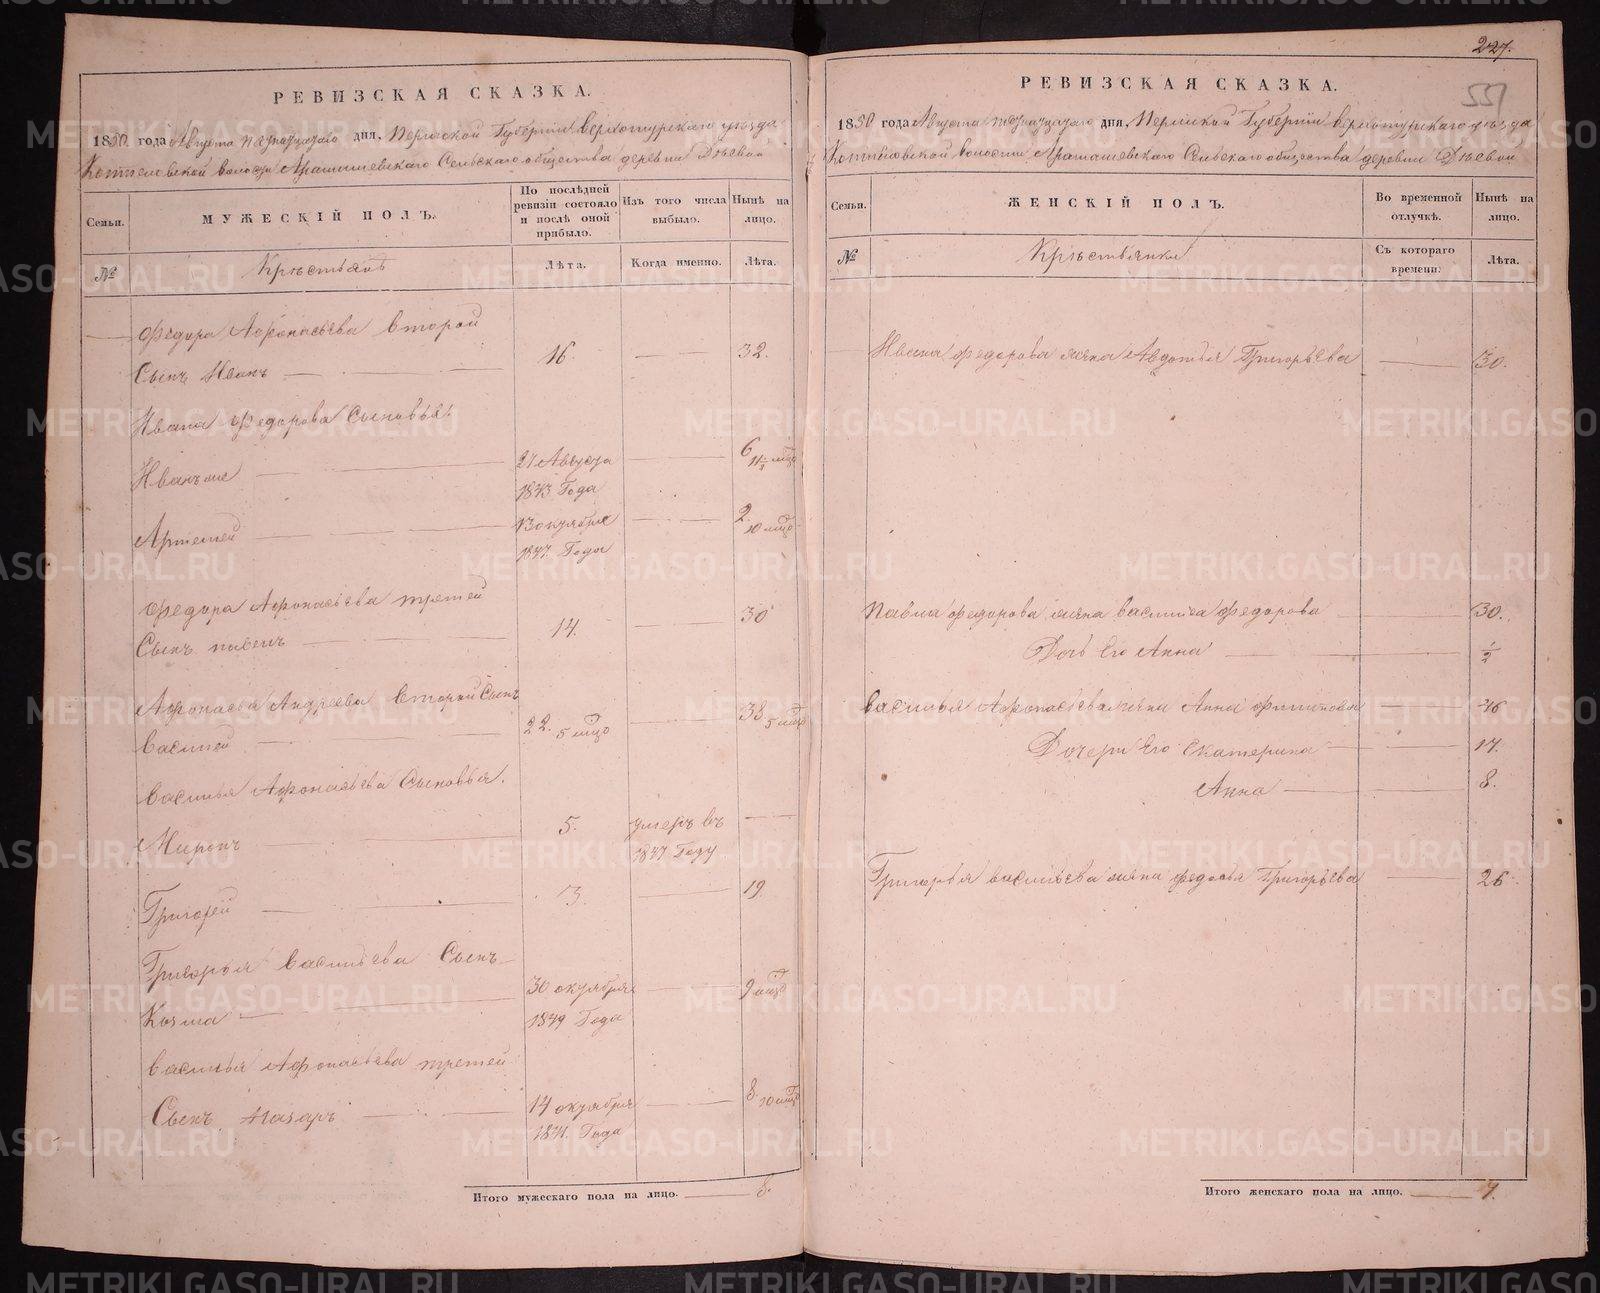 227.
РЕВИЗСКАЯ СКАЗКА.
1850 года Августа пятнадцатаго дня, Пермской Губернии Верхотурскаго уезда
волости Арамашевскаго Сельскаго общества деревни
Семьи.
МУЖЕСКІЙ ПОЛЪ.
По послѣдней ревизіи состояло и послѣ оной прибыло.
Изъ того числа выбыло.
Нынѣ на лицо.
№
Крестьянъ
Лѣта.
Когда именно.
Лѣта.
Федора Афонасьева второй
Сынъ Иванъ 16. 32.
Ивана Федорова Сыновья:
Иванъ 27 Августа 6 11 1/2 мѣц
1843 Года
Артемей 13 октября 2. 10 мѣц
1847. Года
Федора Афонасьева третей
Сынъ павелъ 14. 30
Афонасья Андреева второй Сынъ
Василей 22. 5 мѣц 38 5 мѣц
Василья Афонасьева Сыновья.
Миронъ 5. умеръ въ
1847 Году
Григорей 3 19.
Григорья Васильева Сынъ
Козма 30 октября 9 мѣц
1849 Года
Василья Афонасьева третей
Сынъ Назаръ 14 октября 8. 10 мѣц
1841. Года
Итого мужескаго пола на лицо. 8.
РЕВИЗСКАЯ СКАЗКА.
1850 года Августа пятнадцатаго дня, Пермской Губернии Верхотурскаго уезда
волости Арамашевскаго Сельскаго общества деревни
Семьи.
ЖЕНСКІЙ ПОЛЪ.
Во временной отлучкѣ.
Нынѣ на лицо.
№
Крестьянки
Съ котораго времени.
Лѣта.
Ивана Федорова жена Авдотья Григорьева 30.
Павла Федорова жена Василиса Федорова 30.
Дочь Его Анна 1/2
Василья Афонасьева жена Анна 46
Дочери Его Екатерина 17.
Анна 8.
Григорья Васильева жена Федосья Григорьева 26
Итого женскаго пола на лицо. 7.
METRIKI.GASO-URAL.RU